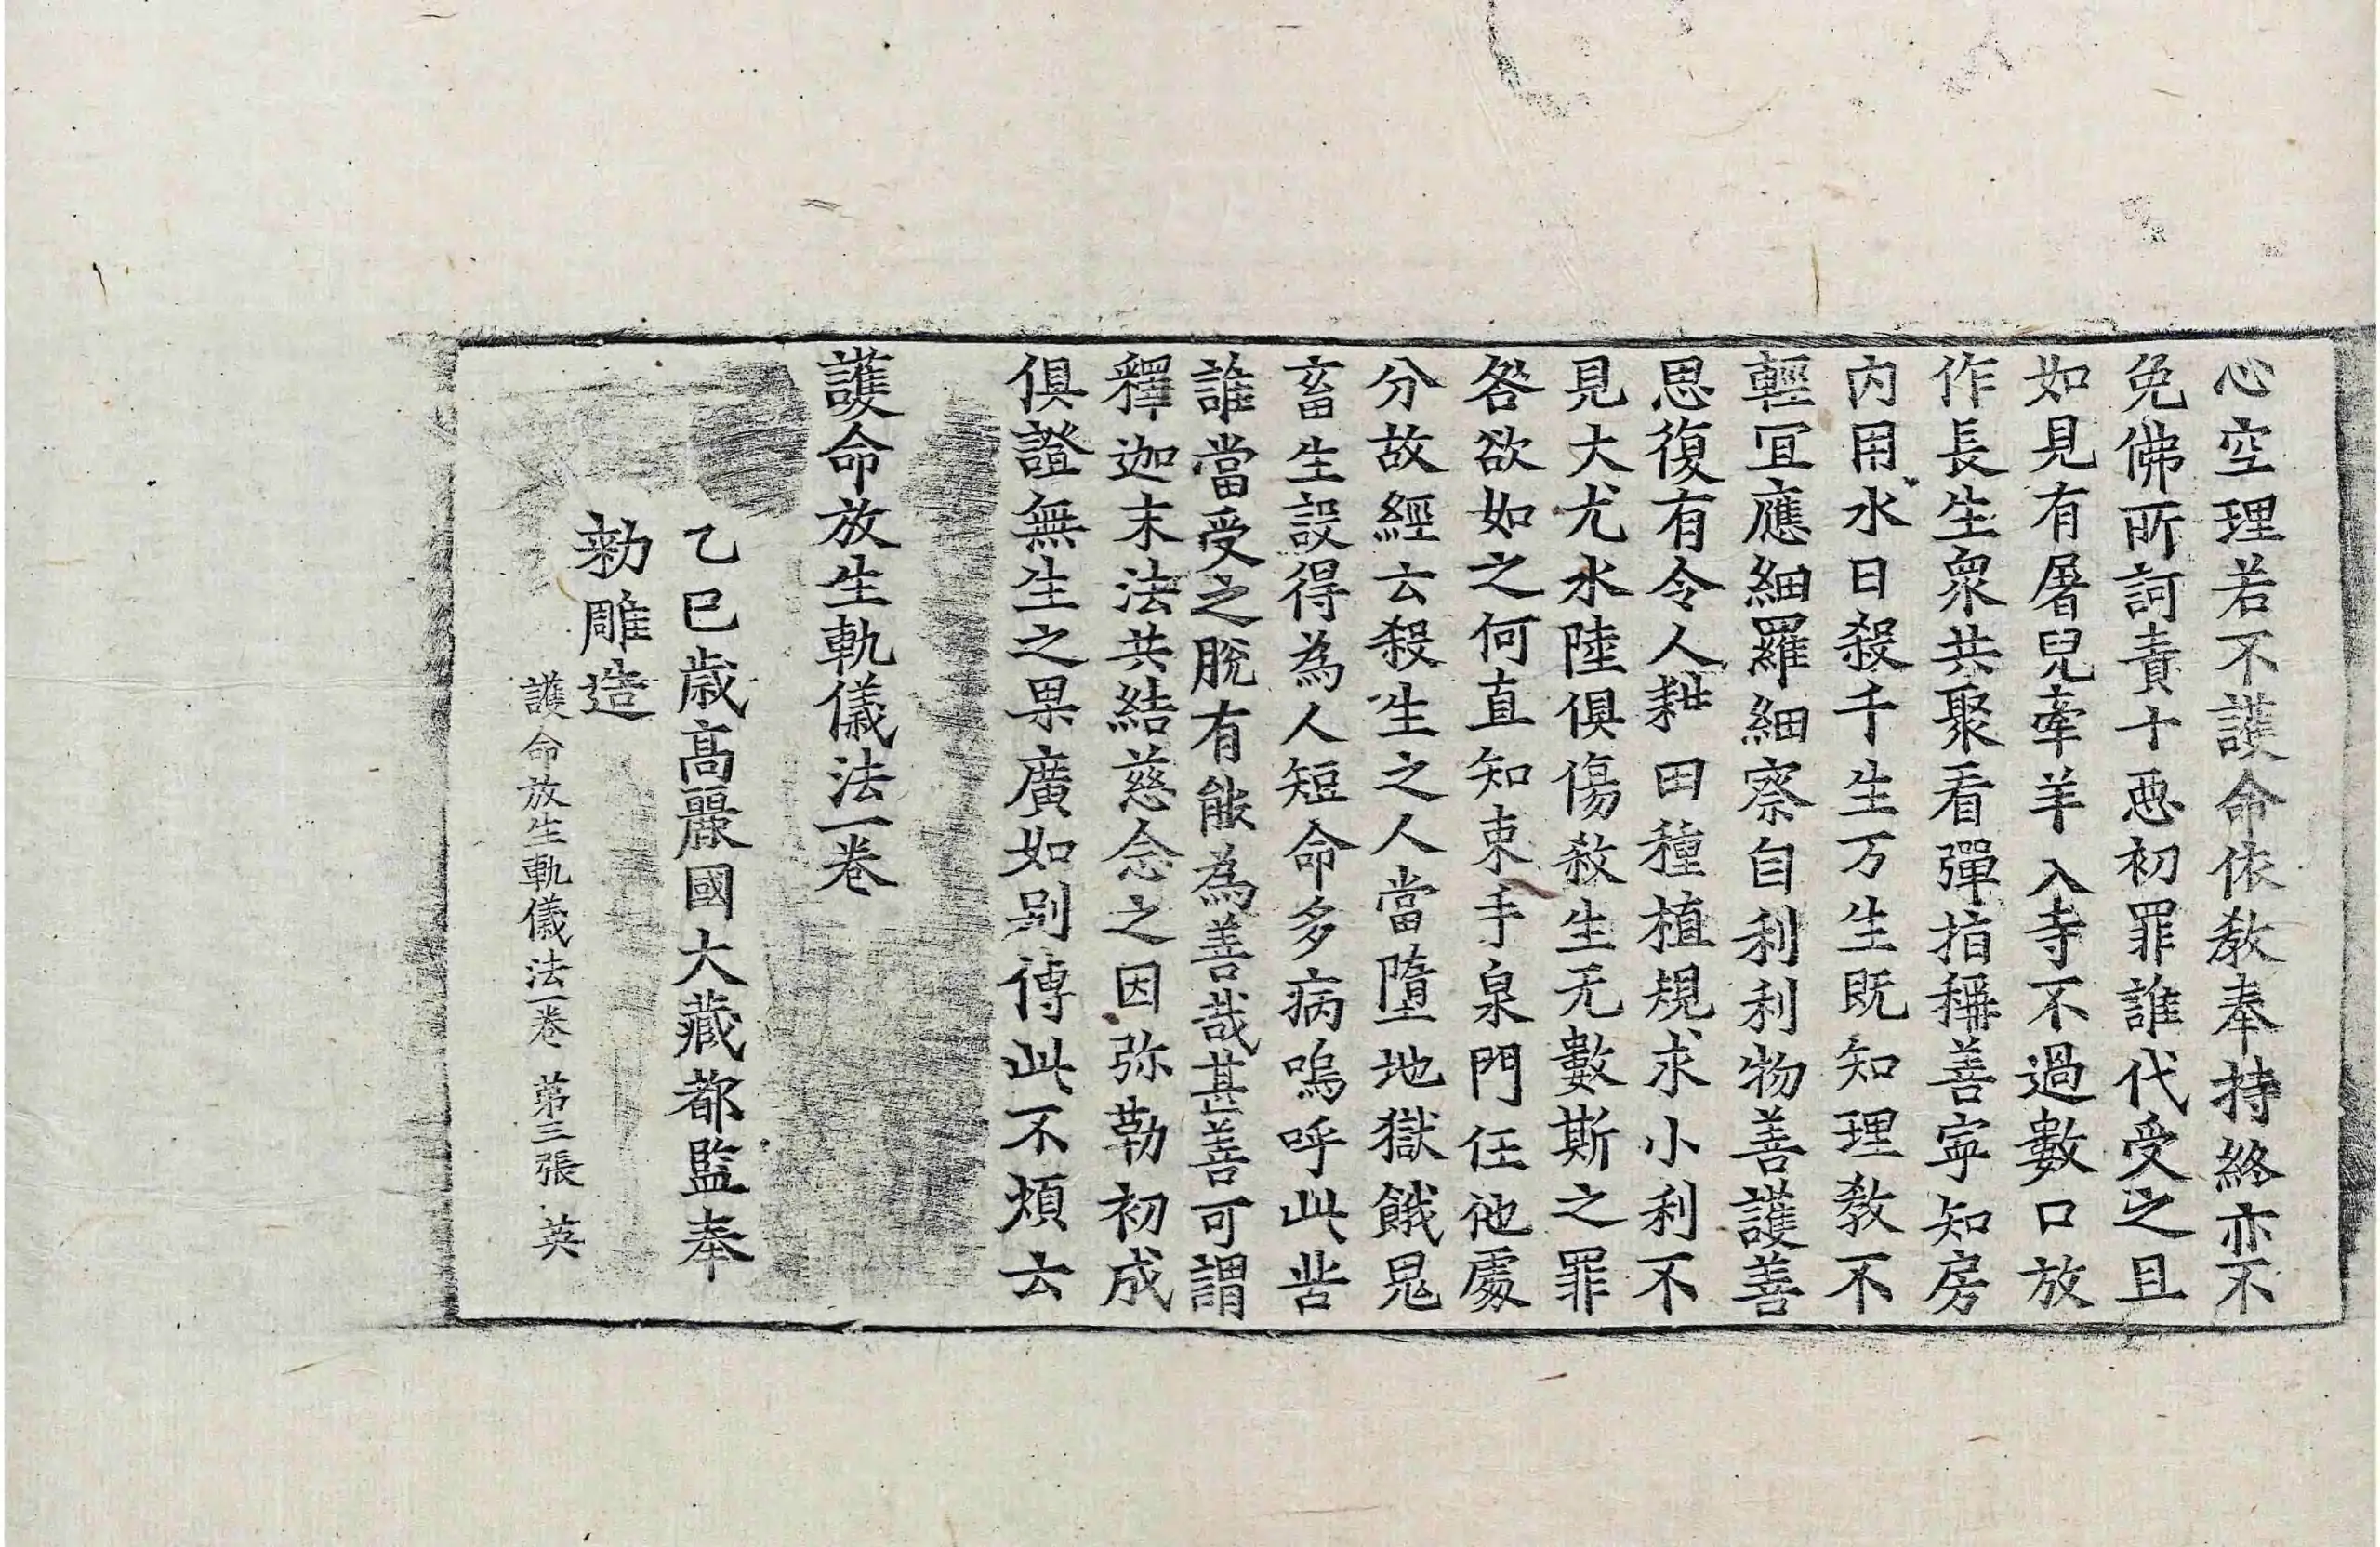 心空理若不護命依教奉持終亦不
免佛所訶責十惡初罪誰代受之且
如見有屠兒牽羊入寺不過數口放
作長生衆共聚看彈指稱善寧知房
內用水日殺千生万生旣知理教不
輕冝應細羅細察自利利物善護善
思復有令人耕田種植規求小利不
見大尤水陸俱傷殺生无數斯之罪
咎欲如之何直知束手泉門任他處
分故經云殺生之人當墮地獄餓鬼
畜生設得為人短命多病嗚呼此苦
誰當受之脫有能為善哉甚善可謂
釋迦末法共結慈念之因弥勒初成
俱證無生之果廣如別傳此不煩云
護命放生軌儀法一卷
乙巳歲高麗國大藏都監奉
勑雕造
護命放生軌儀法一卷 第三張 英